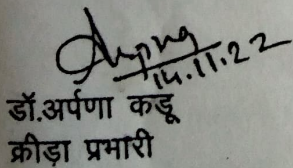 14.11.22
डॉ.अर्पणा कडू
क्रीड़ा प्रभारी